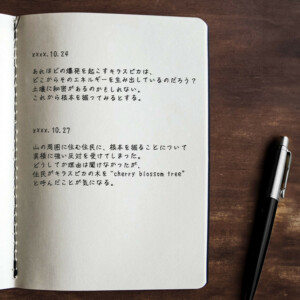 xxxx.10.24
あれほどの爆発を起こすキラスピカは、
どこからそのエネルギーを生み出しているのだろう？
土壌に秘密があるのかもしれない。
これから根本を掘ってみるとする。
xxxx.10.27
山の周囲に住む住民に、根本を掘ることについて
異様に強い反対を受けてしまった。
どうしてか理由は聞けなかったが、
住民がキラスピカの木を"cherry blossom tree"
と呼んだことが気になる。